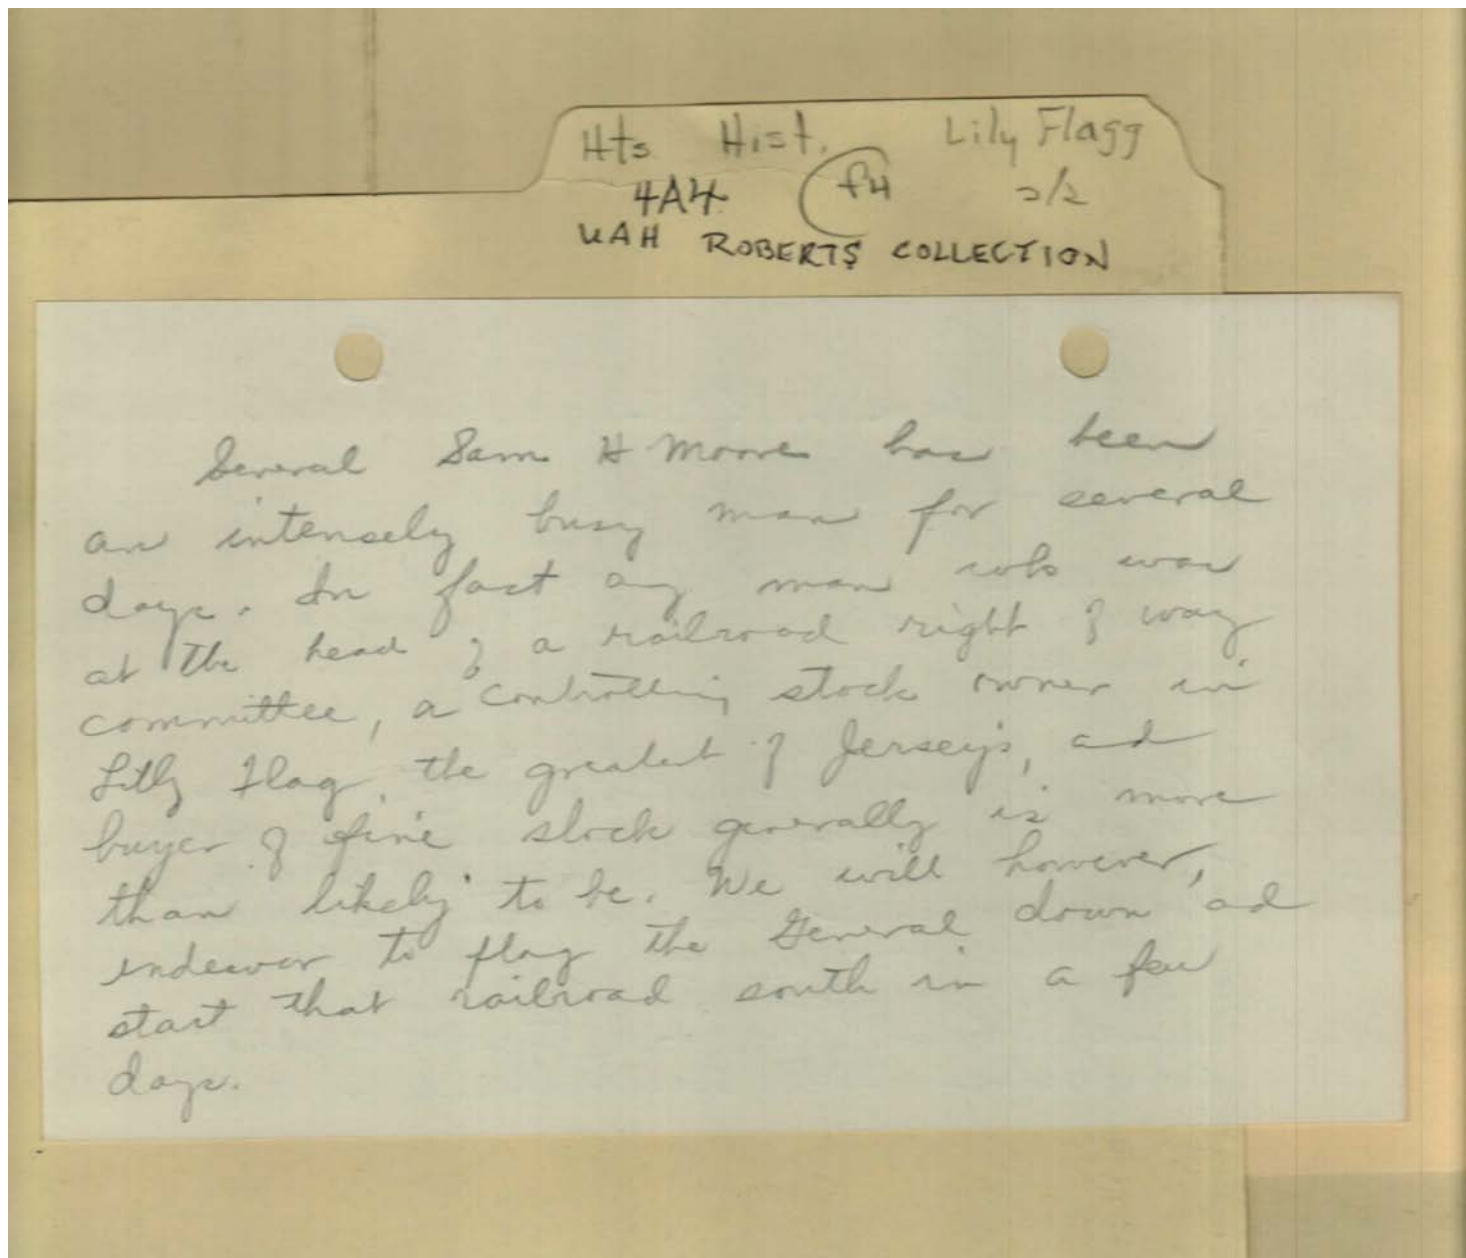 Hts Hist. Lily Flagg
4A4 f4 2/2
UAH ROBERTS COLLECTION
General Sam H Moore has been
an intensely busy man for several
days. In fact any man who was
at the head of a railroad right of way
committee, a controlling stock owner in
Lilly Flag, the greatest of Jersey's, and
buyer of fine stock generally is more
than likely to be. We will however,
endeavor to flag the General down and
start that railroad south in a few
days.